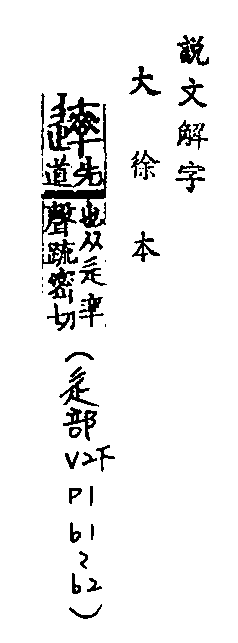 説文解字
大徐本
𨗿
先道
也从辵率
聲疏密切
(辵部V2下P1b1~b2)